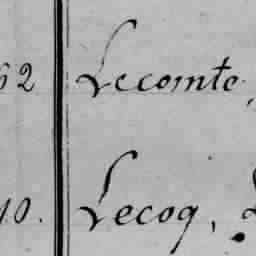 62 Lecomte,
10. Lecoq,